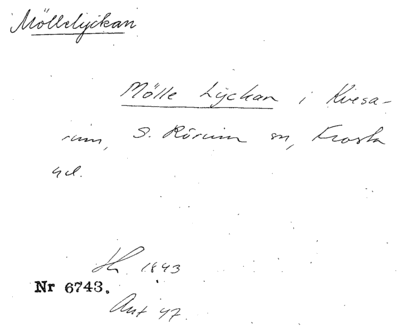 Möllelyckan
Mölle Lyckan i Kvesa-
rum, S. Rörum sn, Frosta
hd.
1843
Nr 6743.
Ant 47.